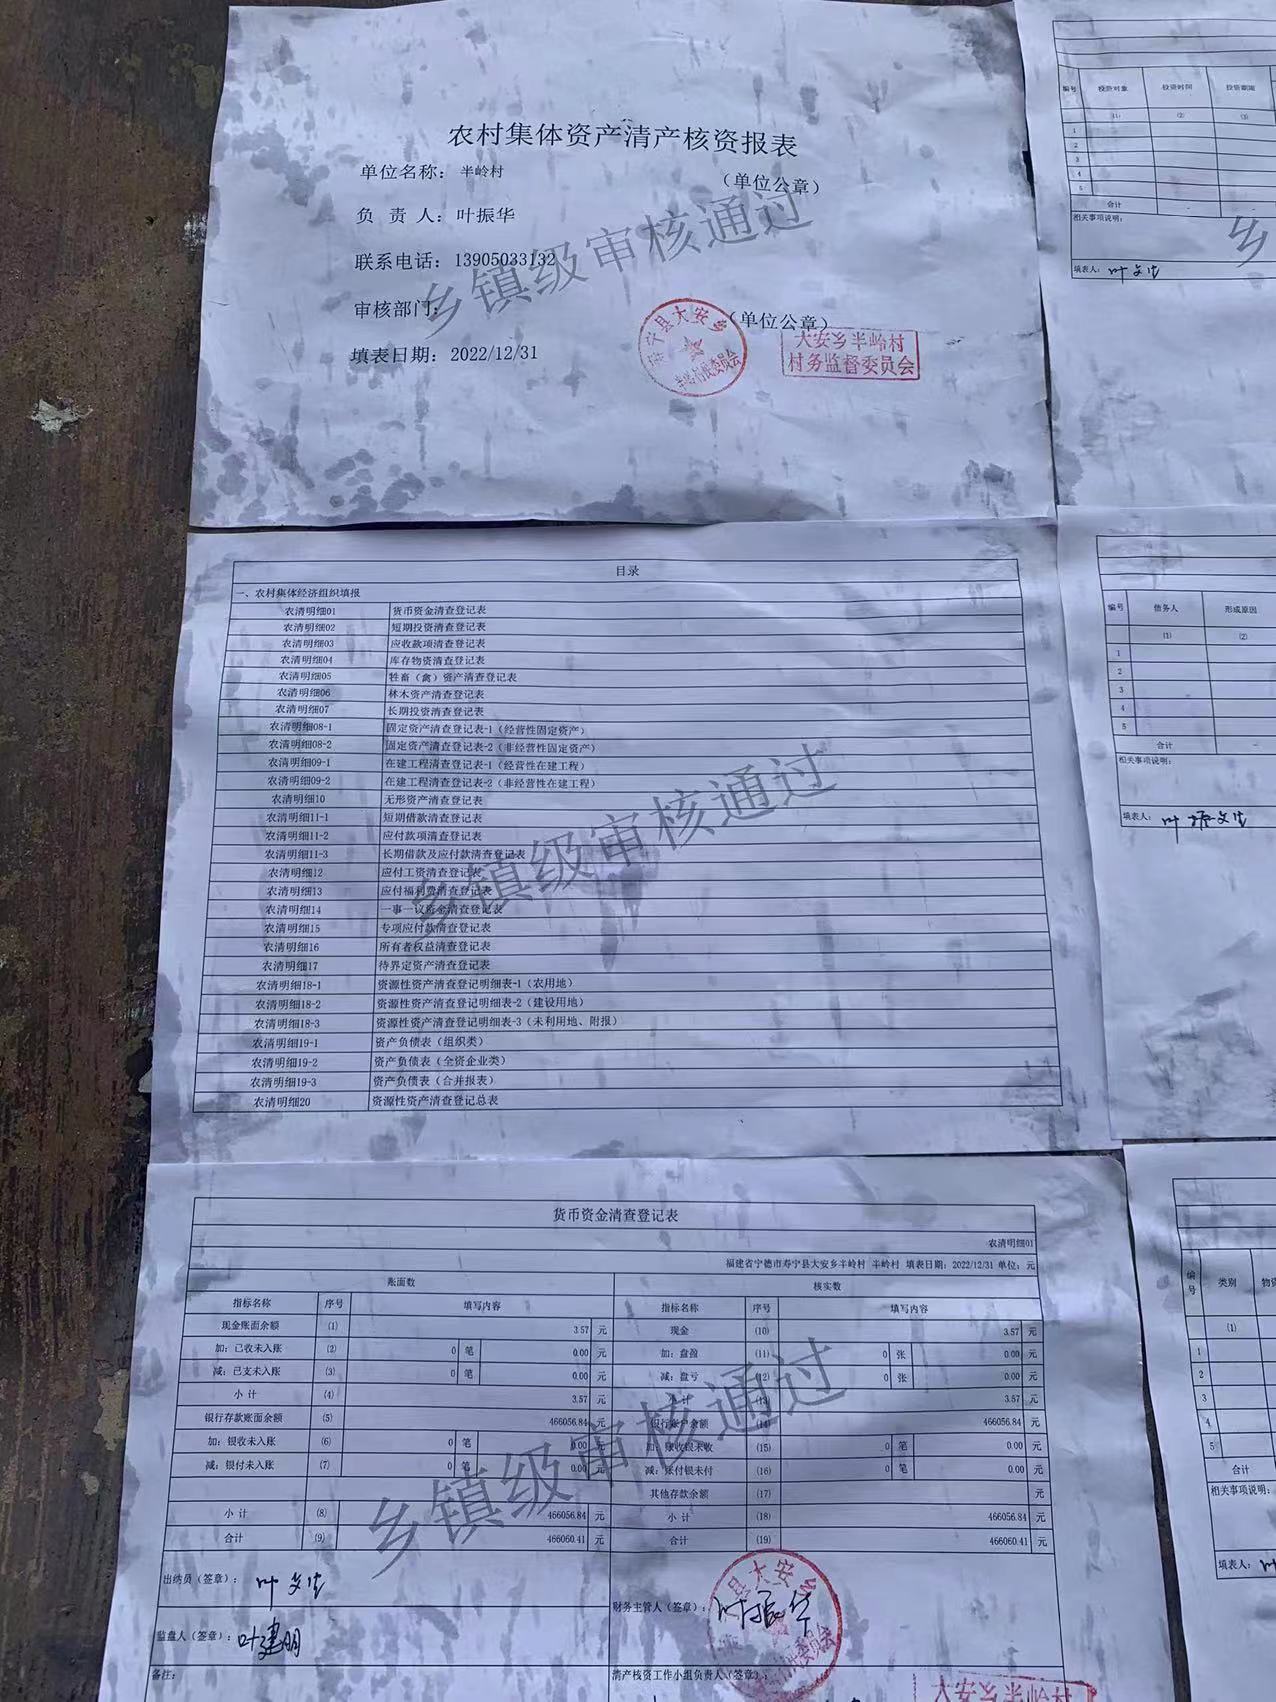 农村集体资产清产核资报表
单位名称： 半岭村 （单位公章）
负 责 人：叶振华
联系电话：13905033132
审核部门： （单位公章）
填表日期：2022/12/31
乡镇级审核通过
寿宁县大安乡
半岭村民委员会
大安乡半岭村
村务监督委员会
编号 投资对象 投资时间 投资期限
(1) (2) (3)
1
2
3
4
5
合计
相关事项说明：
填表人：
目录
一、农村集体经济组织填报
农清明细01 货币资金清查登记表
农清明细02 短期投资清查登记表
农清明细03 应收款项清查登记表
农清明细04 库存物资清查登记表
农清明细05 牲畜（禽）资产清查登记表
农清明细06 林木资产清查登记表
农清明细07 长期投资清查登记表
农清明细08-1 固定资产清查登记表-1（经营性固定资产）
农清明细08-2 固定资产清查登记表-2（非经营性固定资产）
农清明细09-1 在建工程清查登记表-1（经营性在建工程）
农清明细09-2 在建工程清查登记表-2（非经营性在建工程）
农清明细10 无形资产清查登记表
农清明细11-1 短期借款清查登记表
农清明细11-2 应付款项清查登记表
农清明细11-3 长期借款及应付款清查登记表
农清明细12 应付工资清查登记表
农清明细13 应付福利费清查登记表
农清明细14 一事一议资金清查登记表
农清明细15 专项应付款清查登记表
农清明细16 所有者权益清查登记表
农清明细17 待界定资产清查登记表
农清明细18-1 资源性资产清查登记明细表-1（农用地）
农清明细18-2 资源性资产清查登记明细表-2（建设用地）
农清明细18-3 资源性资产清查登记明细表-3（未利用地、附报）
农清明细19-1 资产负债表（组织类）
农清明细19-2 资产负债表（全资企业类）
农清明细19-3 资产负债表（合并报表）
农清明细20 资源性资产清查登记总表
乡镇级审核通过
编号 债务人 形成原因
(1) (2)
1
2
3
4
5
合计 -
相关事项说明：
填表人：
货币资金清查登记表
农清明细01
福建省宁德市寿宁县大安乡半岭村 半岭村 填表日期：2022/12/31 单位：元
账面数 核实数
指标名称 序号 填写内容 指标名称 序号 填写内容
现金账面余额 (1) 3.57 元 现金 (10) 3.57 元
加：已收未入账 (2) 0 笔 0.00 元 加：盘盈 (11) 0 张 0.00 元
减：已支未入账 (3) 0 笔 0.00 元 减：盘亏 (12) 0 张 0.00 元
小 计 (4) 3.57 元 小 计 (13) 3.57 元
银行存款账面余额 (5) 466056.84 元 银行账户余额 (14) 466056.84 元
加：银收未入账 (6) 0 笔 0.00 元 加：账收银未收 (15) 0 笔 0.00 元
减：银付未入账 (7) 0 笔 0.00 元 减：账付银未付 (16) 0 笔 0.00 元
其他存款余额 (17) 元
小 计 (8) 466056.84 元 小 计 (18) 466056.84 元
合计 (9) 466060.41 元 合计 (19) 466060.41 元
乡镇级审核通过
出纳员（签章）： 财务主管人（签章）：叶振华
监盘人（签章）：叶建明
备注： 清产核资工作小组负责人（签章）：
大安乡半岭村
编号 类别
(1)
1
2
3
4
5
合计
相关事项说明：
填表人：